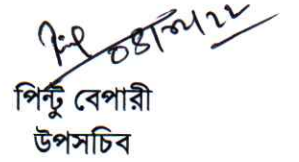 ০৪/০৮/২২
পিন্টু বেপারী
উপসচিব